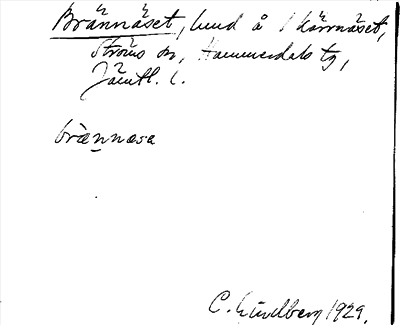 Brännäset, lund å Kärrnäset,
Ströms sn, Hammerdals tg,
Jämtl. l.
brænnæsa
C. Lindberg 1929.